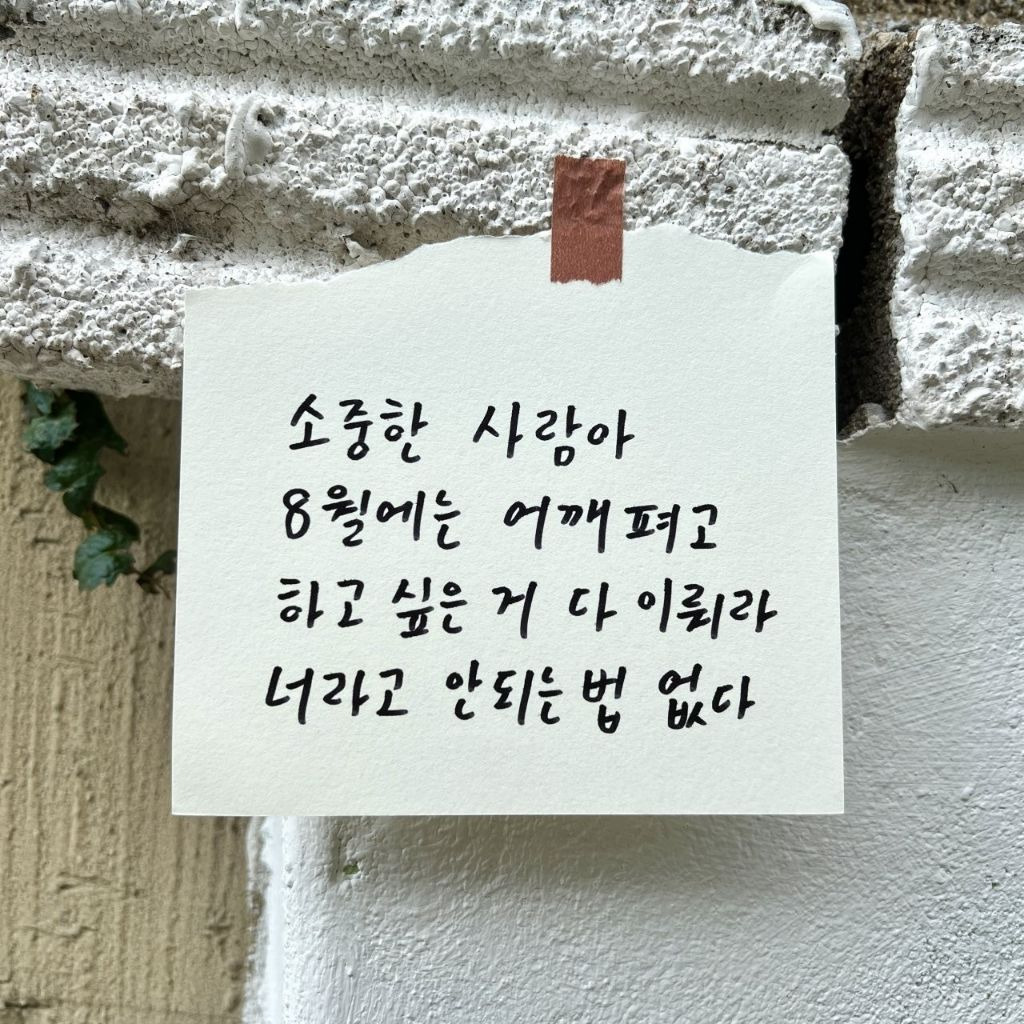 소중한 사람아
8월에는 어깨 펴고
하고 싶은 거 다 이뤄라
너라고 안되는 법 없다